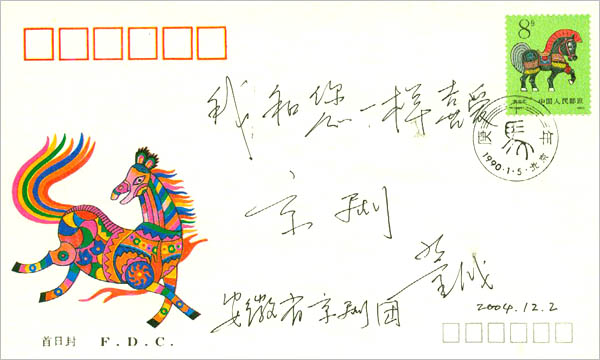 8分
中国人民邮政
我和您一样喜爱
庚 年
1990·1·5·北京
京剧
安徽省京剧团 董成
2004.12.2
首日封 F.D.C.